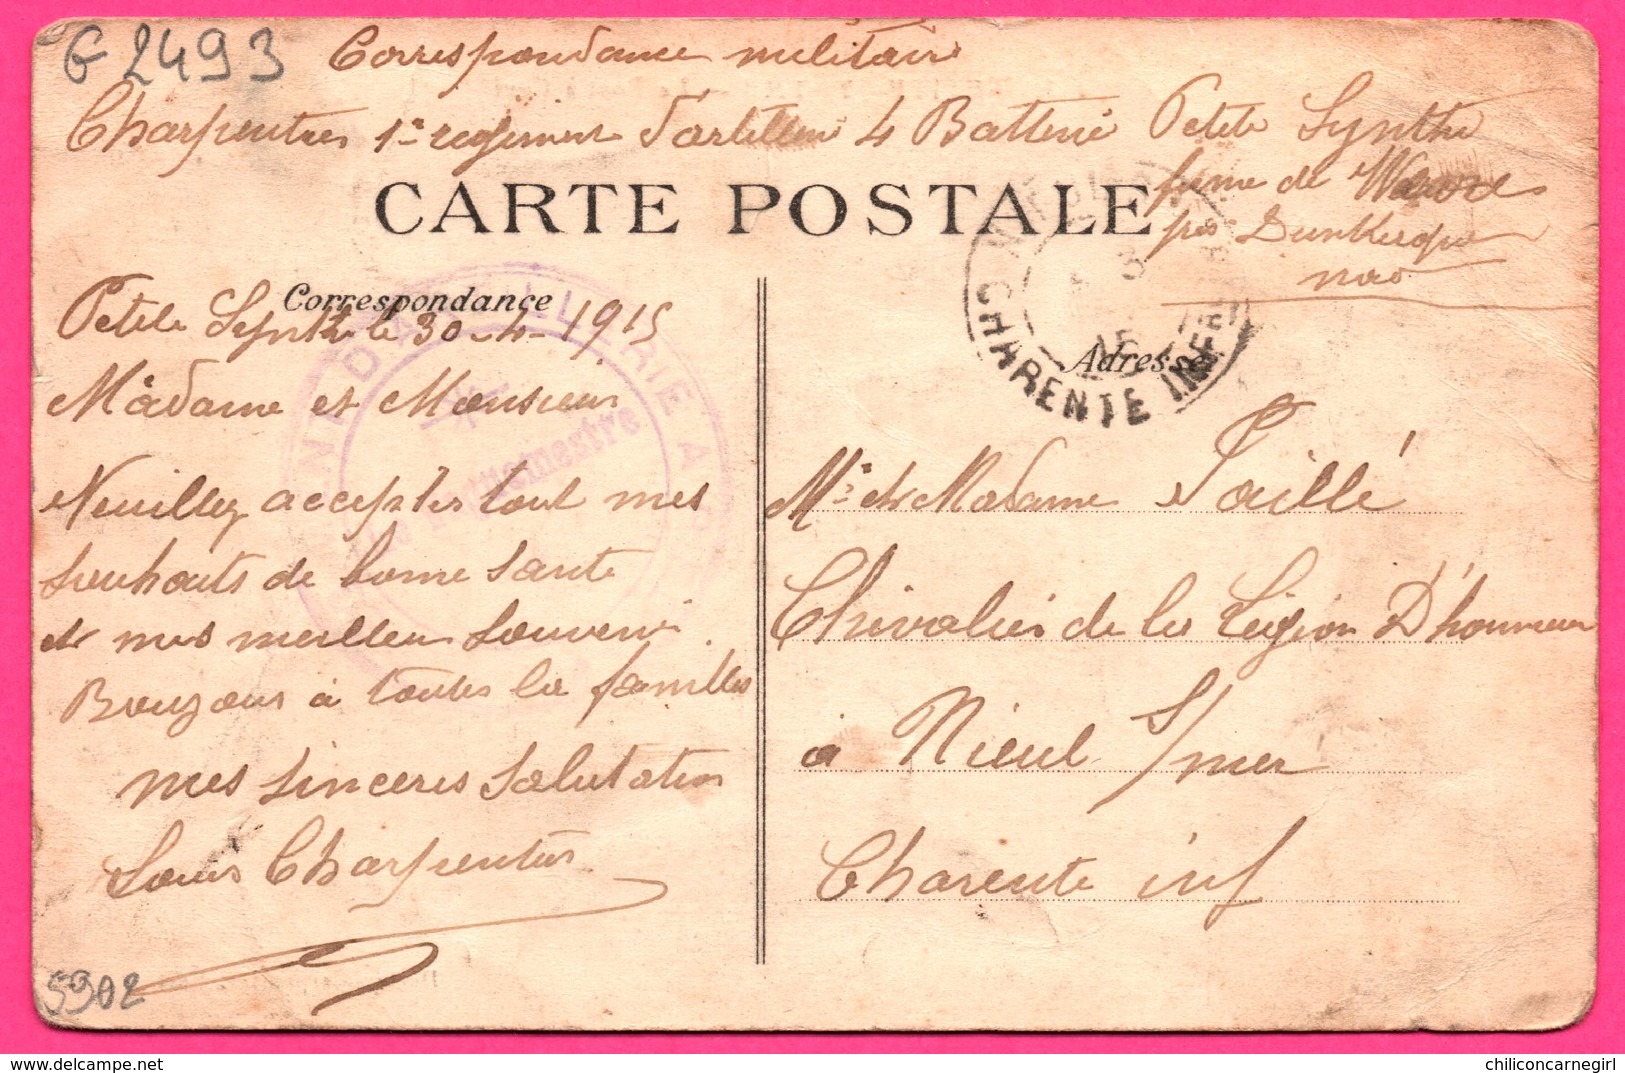 G 2493
Correspondance militaire
Charpentier 1er regiment d'artillerie 4 Batterie Petite Synthe
ferme de
près Dunkerque
nord
CARTE POSTALE
Correspondance
Adresse
CHARENTE INFRE
Vaguemestre
Petite Synthe le 30-4-1915
Madame et Monsieur
Veuilley accepter tout mes
souhaits de bonne sante
et mes meilleur souvenir.
Bonjour à toutes la familles
mes sinceres salutation
Louis Charpentier
Mr et Madame Paillé
Chevalier de la Légion D'honneur
à Nieul s/mer
Charente inf
5902
© delcampe.net
chiliconcarnegirl